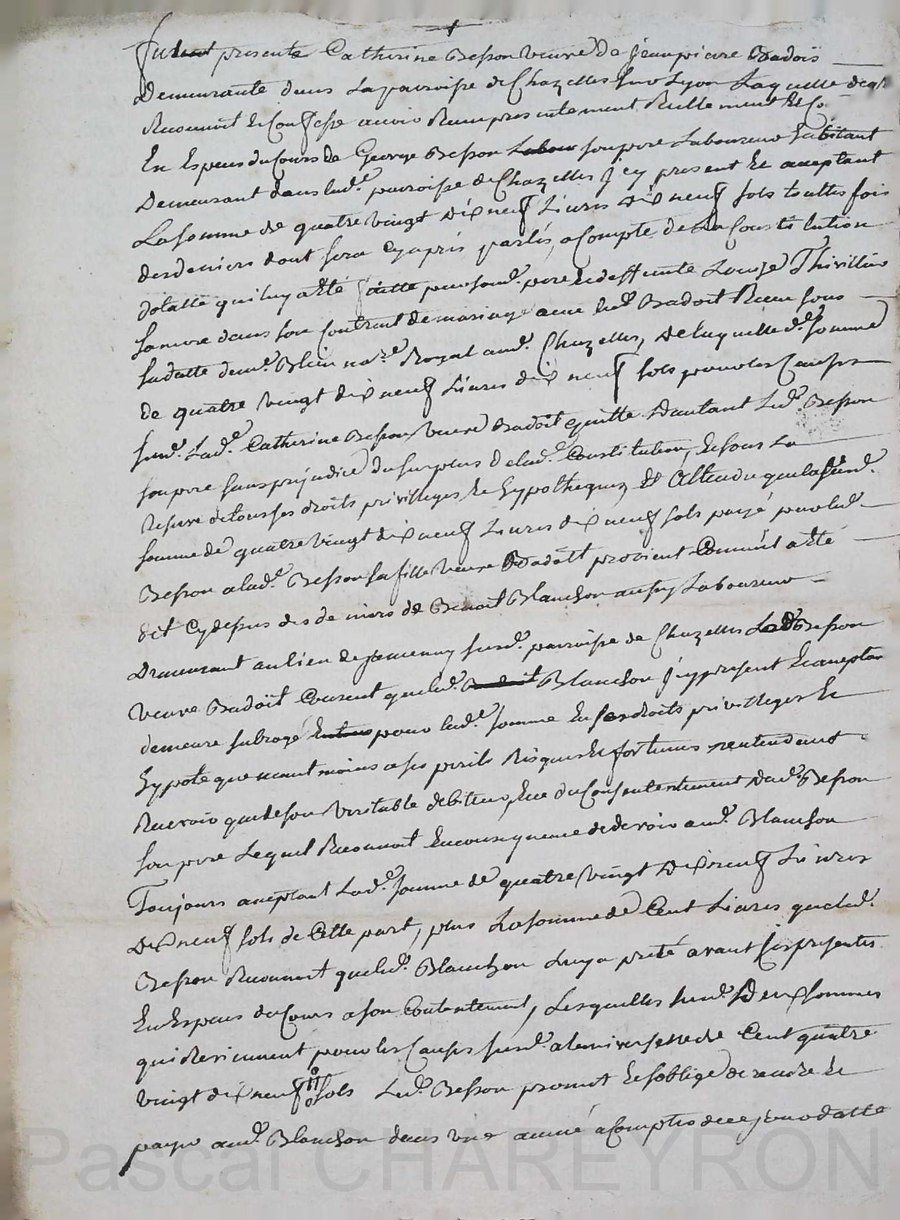 Fut presente Catherine Besson veuve de jean pierre Badoit
Demeurante dans La paroisse de Chazelles sur Lyon Laquelle de gré
Reconnoit et confesse avoir Reçu presentement Reellement et
En Especes du Cours de George Besson son pere Laboureur habitant
Demeurant dans lad.e paroisse de Chazelles jcy present et aceptant
La somme de quatre vingt dix neuf Livres dix neuf sols touttes fois
des deniers dont sera cy aprés parlés, a Compte de La Constitution
dotalle qui luy a eté faitte par son d. pere et deffunte Louise Thivillier
sa mere dans son Contrat de mariage avec led. Badoit Reçu sous
sa datte de m.e Blein no.re Royal aud. Chazelles, De laquelle d.e somme
de quatre vingt dix neuf Livres dix neuf sols pour les Causes
susd. Lad.e Catherine Besson veuve Badoit quitte D'autant Led. Besson
son pere sans prejudice du surplus de lad.e Constitution, et sous La
reserve de tous ses droits privilleges et hypotheques, Et Attendu que la susd.e
somme de quatre vingt dix neuf Livres dix neuf sols payé par led.
Besson a lad.e Besson sa fille veuve Badoit provient Comm'il a eté
dit Cy depus des deniers de Benoit Blanchon aussy Laboureur
Demeurant au lieu de jamenny susd. paroisse de Chazelles Lad.e Besson
veuve Badoit Consent que led. Blanchon jcy present et aceptant
demeure subrogé pour lad.e somme En ses droits privilleges et
hypoteques neant moins a ses perils Risques et fortunes n'entendant
Recevoir que de son veritable debiteur, Et ce du Consentement dud. Besson
son pere Lequel Reconnoit En consequence de devoir aud. Blanchon
Toujours aceptant Lad.e somme de quatre vingt dix neuf Livres
dix neuf sols de Cette part, plus La somme de Cent Livres que led.
Besson Reconnoit que led. Blanchon Luy a preté avant Ces presentes
En Especes du Cours a son Contentement, Lesquelles susd. Deux sommes
qui Reviennent pour les Causes susd. a la universelle de Cent quatre
vingt dix neuf ll sols Led. Besson promet et s'oblige de rendre et
payer aud. Blanchon dans une année a Compter de ce jour datte
Pascal CHAREYRON